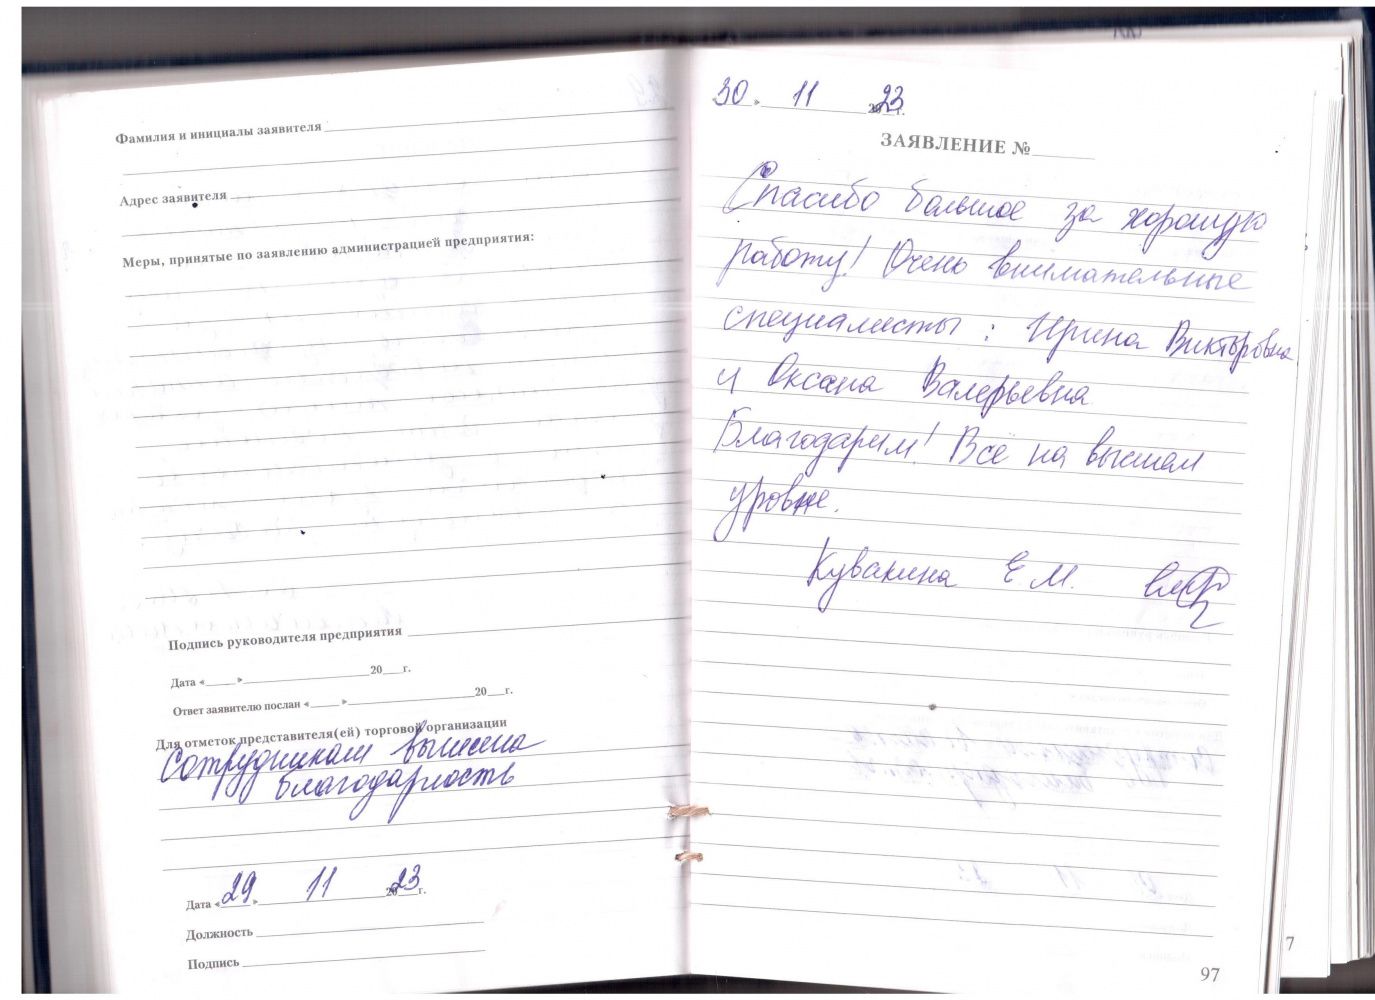 Фамилия и инициалы заявителя
Адрес заявителя
Меры, принятые по заявлению администрацией предприятия:
Подпись руководителя предприятия
Дата «    »    20    г.
Ответ заявителю послан «    »    20    г.
Для отметок представителя(ей) торговой организации
Сотрудникам вынесена
благодарность
Дата « 29 » 11 2023 г.
Должность
Подпись
30 » 11 2023 г.
ЗАЯВЛЕНИЕ №
Спасибо большое за хорошую
работу! Очень внимательные
специалисты : Ирина Викторовна
и Оксана Валерьевна
Благодарим! Всё на высшем
уровне.
Кувакина Е М.
97
7